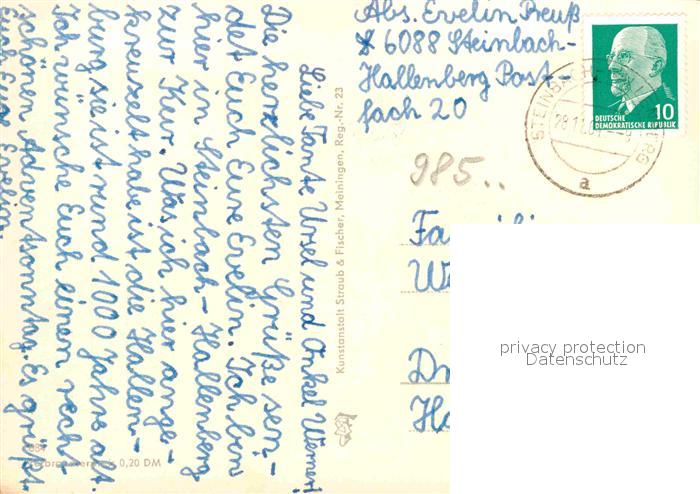 Liebe Tante Ursel und Onkel Werner!
Die herzlichsten Grüße sen-
det Euch Eure Evelin. Ich bin
hier in Steinbach-Hallenberg
zur Kur. Was ich hier ange-
kreuzelt habe ist die Hallen-
burg sie ist rund 1000 Jahre alt.
Ich wünsche Euch einen recht
schönen Adventsonntag. Es grüßt
Euch Eure Evelin
Abs. Evelin Preuß
6088 Steinbach-
Hallenberg Post-
fach 20
DEUTSCHE
DEMOKRATISCHE REPUBLIK
10
STEINBACH
a
985..
Kunstanstalt Straub & Fischer, Meiningen, Reg.-Nr. 23
0,20 DM
privacy protection
Datenschutz